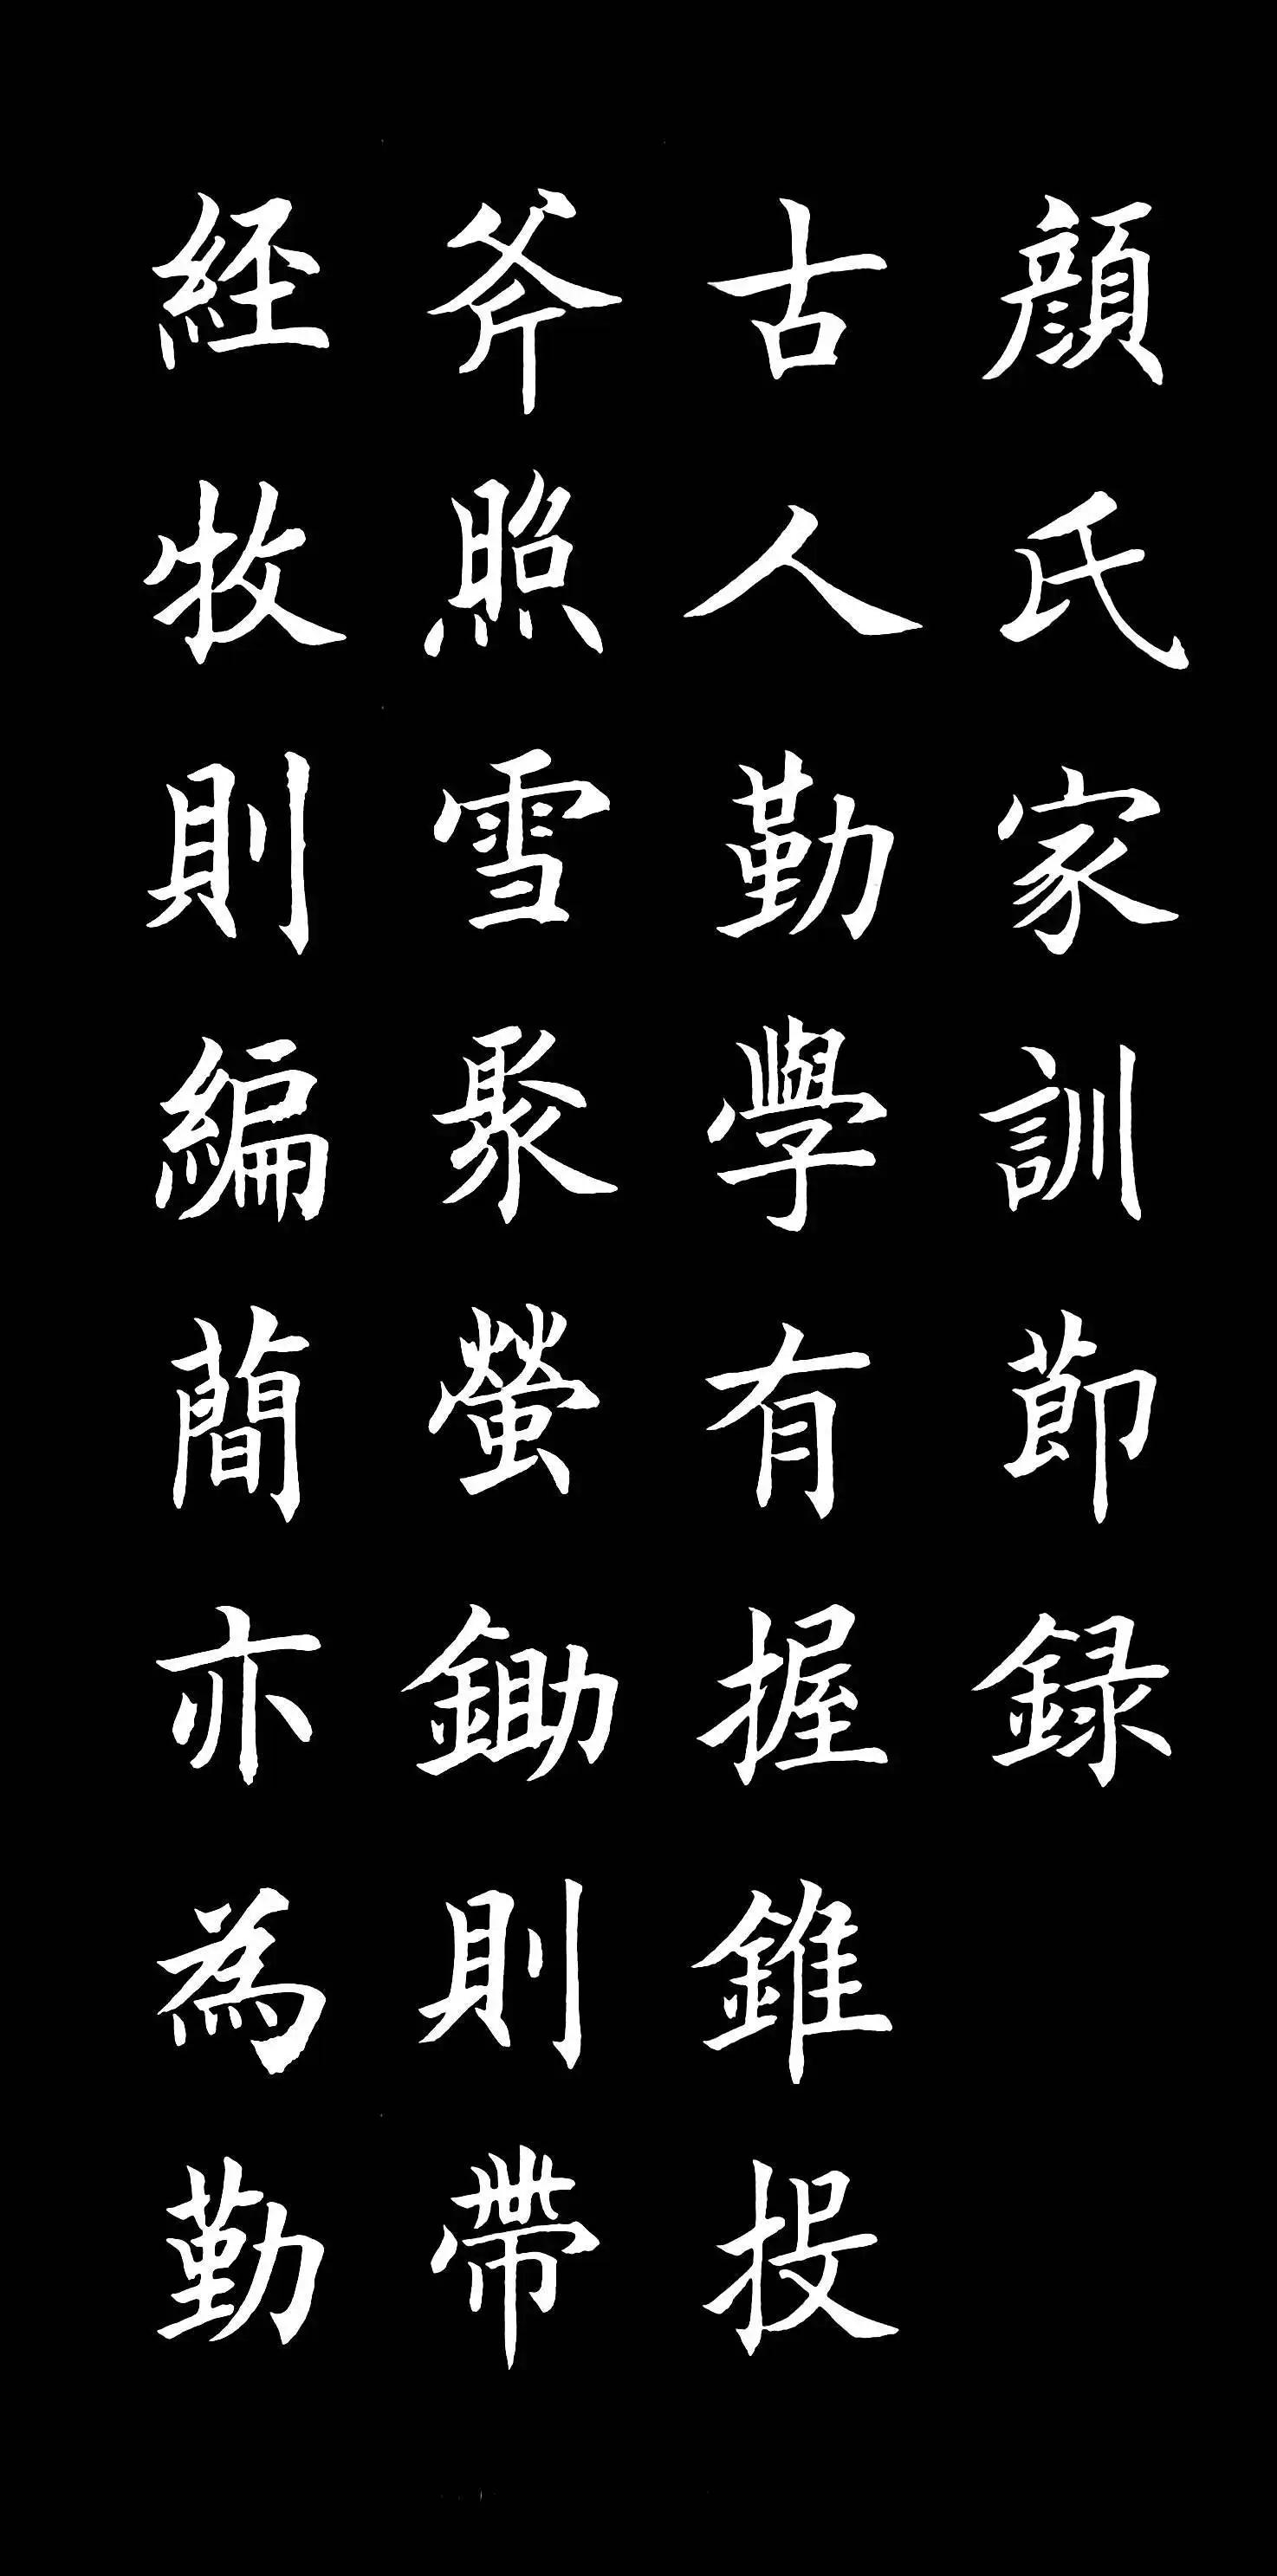 顔氏家訓節録
古人勤學有握錐投
斧照雪聚螢鋤則帶
経牧則編簡亦為勤